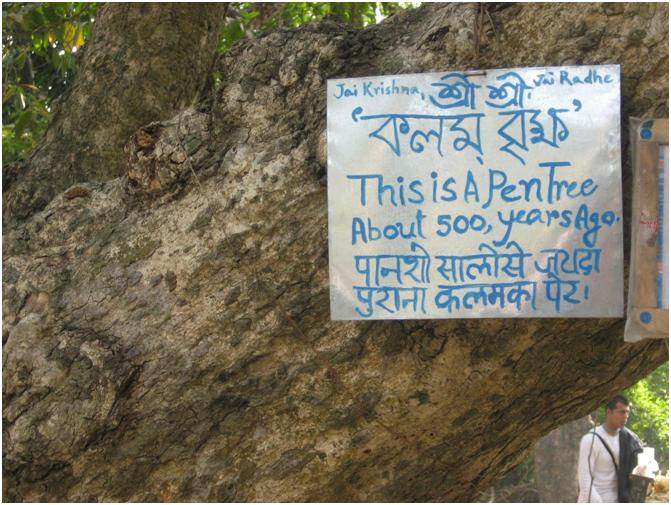 Jai Krishna, শ্রী শ্রী, Jai Radhe
‘কলম্ বৃক্ষ’
This is A Pen Tree
About 500, years Ago.
पानशौ सालोसे ज्यादा
पुराना कलमका पेर।